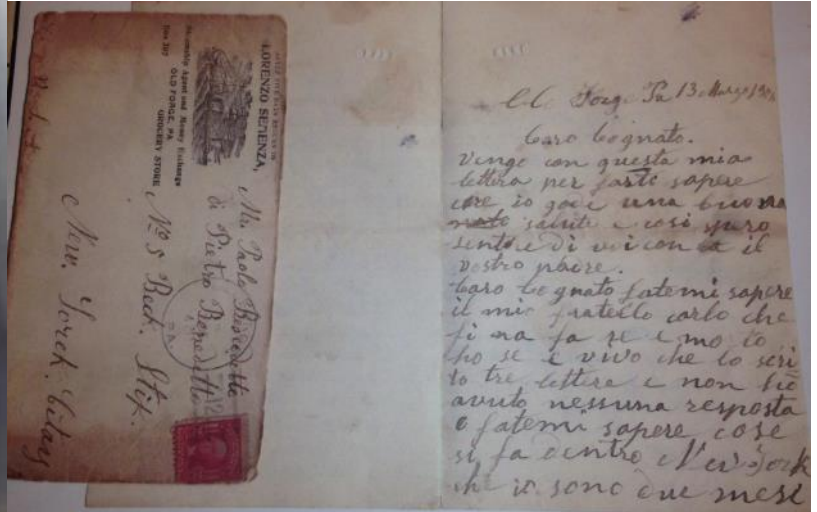 LORENZO SEMENZA,
Steamship Agent and Money Exchange
OLD FORGE, PA
Box 307 GROCERY STORE
Mr. Paolo Benedetto
di Pietro Benedetto
No 5 Beck. Stif.
New. Jorck. Citay
Forge Pa 13 Marzo
Caro Cognato.
Vengo con questa mia
lettera per farti sapere
che io godi una buona
salute e così spero
sentire di voi con a il
vostro padre.
Caro Cognato fatemi sapere
il mio fratello carlo che
fi na fa se e mo to
ho se e vivo che lo scri
to tre lettere e non hio
avuto nessuna resposta
e fatemi sapere cose
si fa dentro New Jork
che io sono due mesi